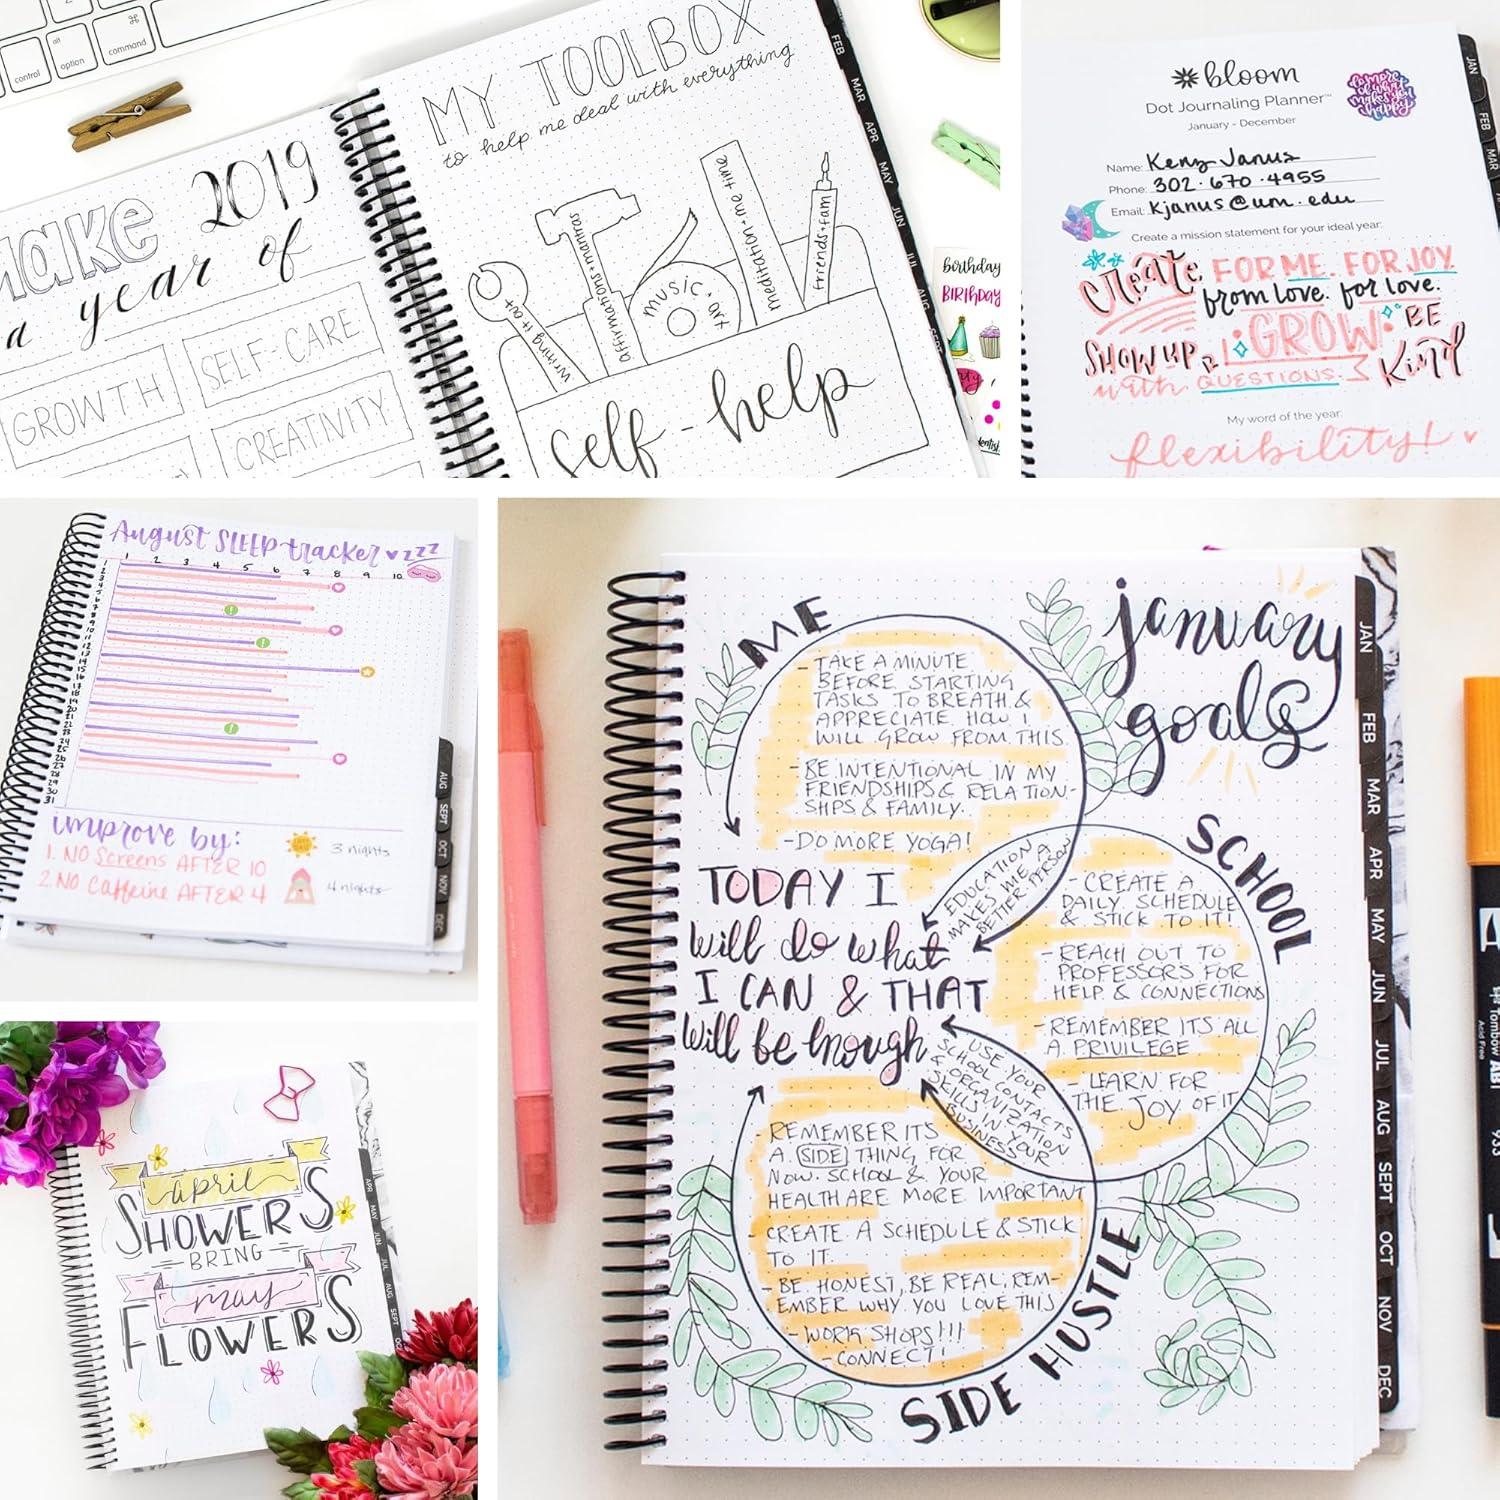 control
alt
option
⌘
command
make 2019
a year of
GROWTH
SELF-CARE
CREATIVITY
MY TOOLBOX
to help me deal with everything
writing it out
affirmations + mantras
MUSIC
meditation + me time
friends + fam
self-help
FEB
MAR
APR
MAY
JUN
JUL
AUG
birthday
BIRTHDAY
bloom
Dot Journaling Planner™
January - December
do more of what makes you happy
Name: Keny Janus
Phone: 302·670·4955
Email: Kjanus@um.edu
Create a mission statement for your ideal year:
Create FOR ME. FOR JOY.
from love. for love.
SHOW UP GROW BE
with QUESTIONS. Kind
My word of the year:
flexibility!
JAN
FEB
MAR
August SLEEP tracker zzz
1 2 3 4 5 6 7 8 9 10
1
2
3
4
5
6
7
8
9
10
11
12
13
14
15
16
17
18
19
20
21
22
23
24
25
26
27
28
29
30
31
improve by:
1. NO Screens AFTER 10
2. NO Caffeine AFTER 4
3 nights
4 nights
AUG
SEPT
OCT
NOV
DEC
april
SHOWERS
BRING
may
FLOWERS
APR
MAY
JUN
JUL
AUG
SEPT
OCT
january
goals
ME
- TAKE A MINUTE
BEFORE STARTING
TASKS TO BREATH &
APPRECIATE HOW I
WILL GROW FROM THIS.
- BE INTENTIONAL IN MY
FRIENDSHIPS & RELATION-
SHIPS & FAMILY.
- DO MORE YOGA!
EDUCATION
MAKES ME A
BETTER PERSON
TODAY I
will do what
I CAN & THAT
will be enough
SCHOOL
- CREATE A
DAILY SCHEDULE
& STICK TO IT!
- REACH OUT TO
PROFESSORS FOR
HELP & CONNECTIONS
- REMEMBER ITS ALL
A PRIVILEGE
- LEARN FOR
THE JOY OF IT
USE YOUR
SCHOOL CONTACTS
& ORGANIZATION
SKILLS IN YOUR
BUSINESS
- REMEMBER IT'S
A SIDE THING FOR
NOW. SCHOOL & YOUR
HEALTH ARE MORE IMPORTANT
- CREATE A SCHEDULE & STICK
TO IT.
- BE HONEST, BE REAL, REM-
EMBER WHY YOU LOVE THIS
- WORK SHOPS!!!
- CONNECT!
SIDE HUSTLE
JAN
FEB
MAR
APR
MAY
JUN
JUL
AUG
SEPT
OCT
NOV
DEC
Tombow ABT
Acid Free
933